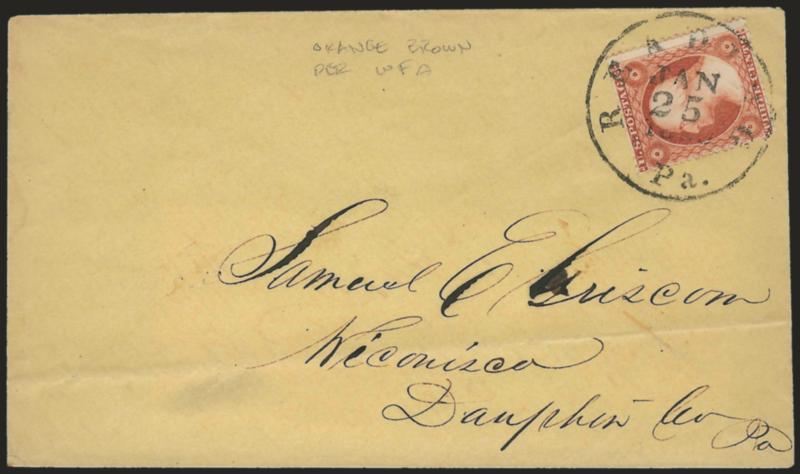 ORANGE BROWN
PER WFA
READING
JAN
25
Pa.
U.S. POSTAGE
THREE CENTS
Samuel E Griscom
Wiconisco
Dauphin Co
Pa